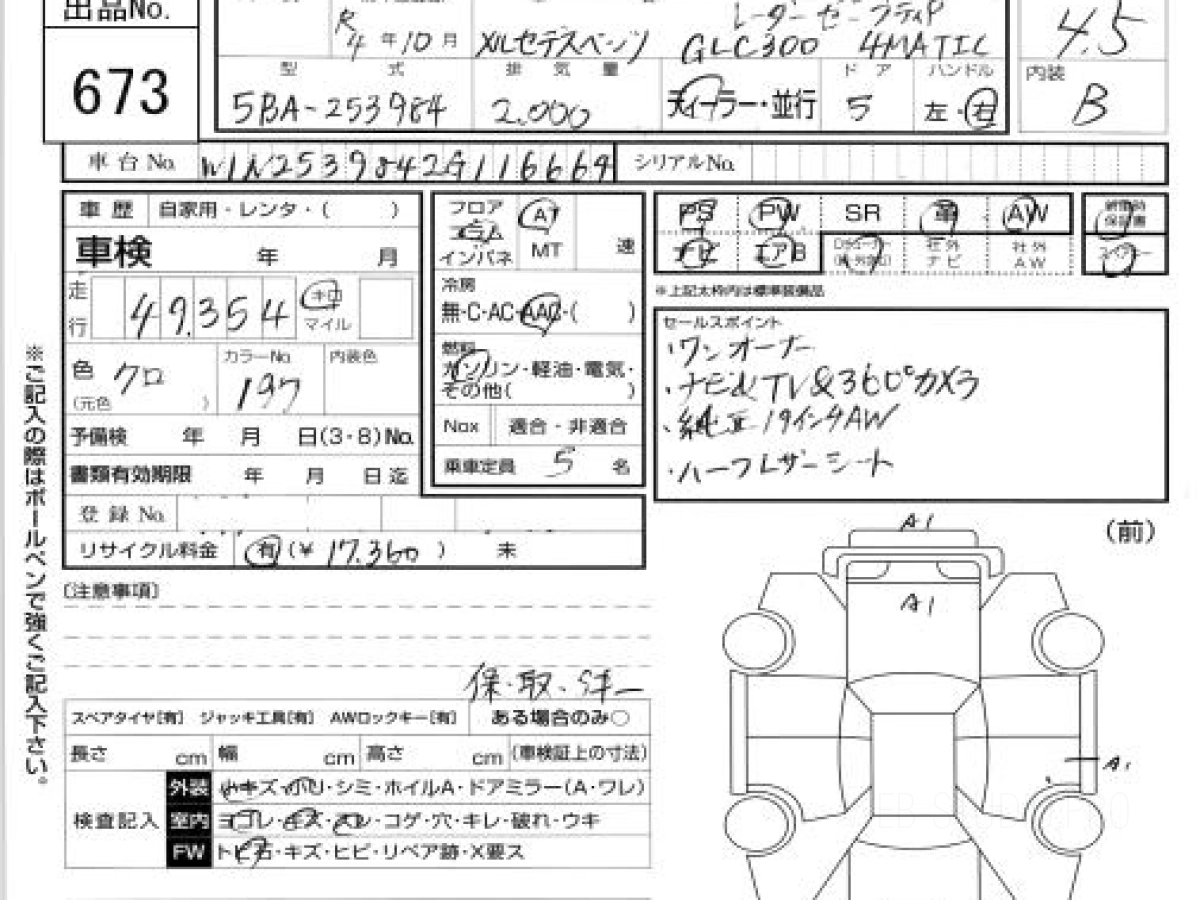 出品No.
673
R4年10月
メルセデスベンツ
レーダーセーフティP
GLC300 4MATIC
4.5
型式
5BA-253984
排気量
2.000
ディーラー・並行
ドア
5
ハンドル
左・右
内装
B
車台No. W1N2539842G116669
シリアルNo.
車歴 自家用・レンタ・( )
車検 年 月
走行 49,354 キロ マイル
色 クロ
(元色 )
カラーNo.
197
内装色
予備検 年 月 日(3・8)No.
書類有効期限 年 月 日迄
登録No.
リサイクル料金 有(¥ 17.360 ) 未
フロア
コラム
インパネ
AT
MT
速
冷房
無・C・AC・AAC・( )
燃料
ガソリン・軽油・電気・
その他( )
Nox 適合・非適合
乗車定員 5 名
PS PW SR 革 AW
ナビ エアB
社外ナビ
社外AW
保証書
スペアキー
※上記太枠内は標準装備品
セールスポイント
・ワンオーナー
・ナビ&TV&360°カメラ
・純正19インチAW
・ハーフレザーシート
※ご記入の際はボールペンで強くご記入下さい。
〔注意事項〕
保・取・
スペアタイヤ[有] ジャッキ工具[有] AWロックキー[有] ある場合のみ○
長さ cm 幅 cm 高さ cm (車検証上の寸法)
検査記入
外装 小キズ・小ヘコ・シミ・ホイルA・ドアミラー(A・ワレ)
室内 ヨゴレ・キズ・スレ・コゲ・穴・キレ・破れ・ウキ
FW トビ石・キズ・ヒビ・リペア跡・X要ス
(前)
A1
A1
A1